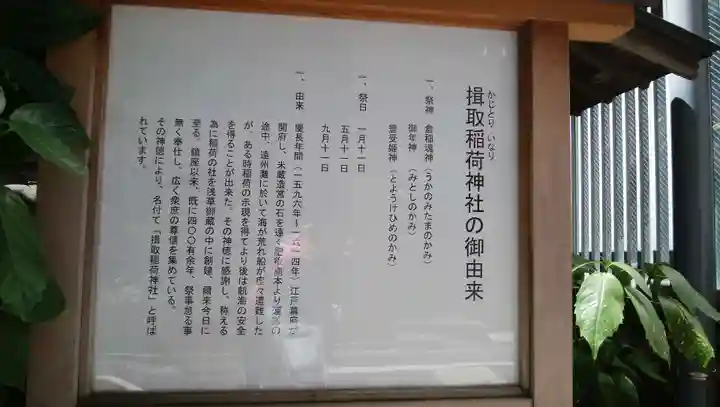 かじとり いなり
揖取稲荷神社の御由来
一、祭神 倉稲魂神(うかのみたまのかみ)
御年神(みとしのかみ)
豊受姫神(とようけひめのかみ)
一、祭日 一月十一日
五月十一日
九月十一日
一、由来 慶長年間(一五九六年~一六一四年)江戸幕府が
開府し、米蔵造営の石を遠く肥後熊本より運ぶの
途中、遠州灘に於いて海が荒れ船が度々遭難した
が、ある時稲荷の示現を得てより後は航海の安全
を得ることが出来た。その神徳に感謝し、称える
為に稲荷の社を浅草御蔵の中に創建、爾来今日に
至る。鎮座以来、既に四〇〇有余年、祭事怠る事
無く奉仕し、広く衆庶の尊信を集めている。
その神徳により、名付て「揖取稲荷神社」と呼ば
れています。